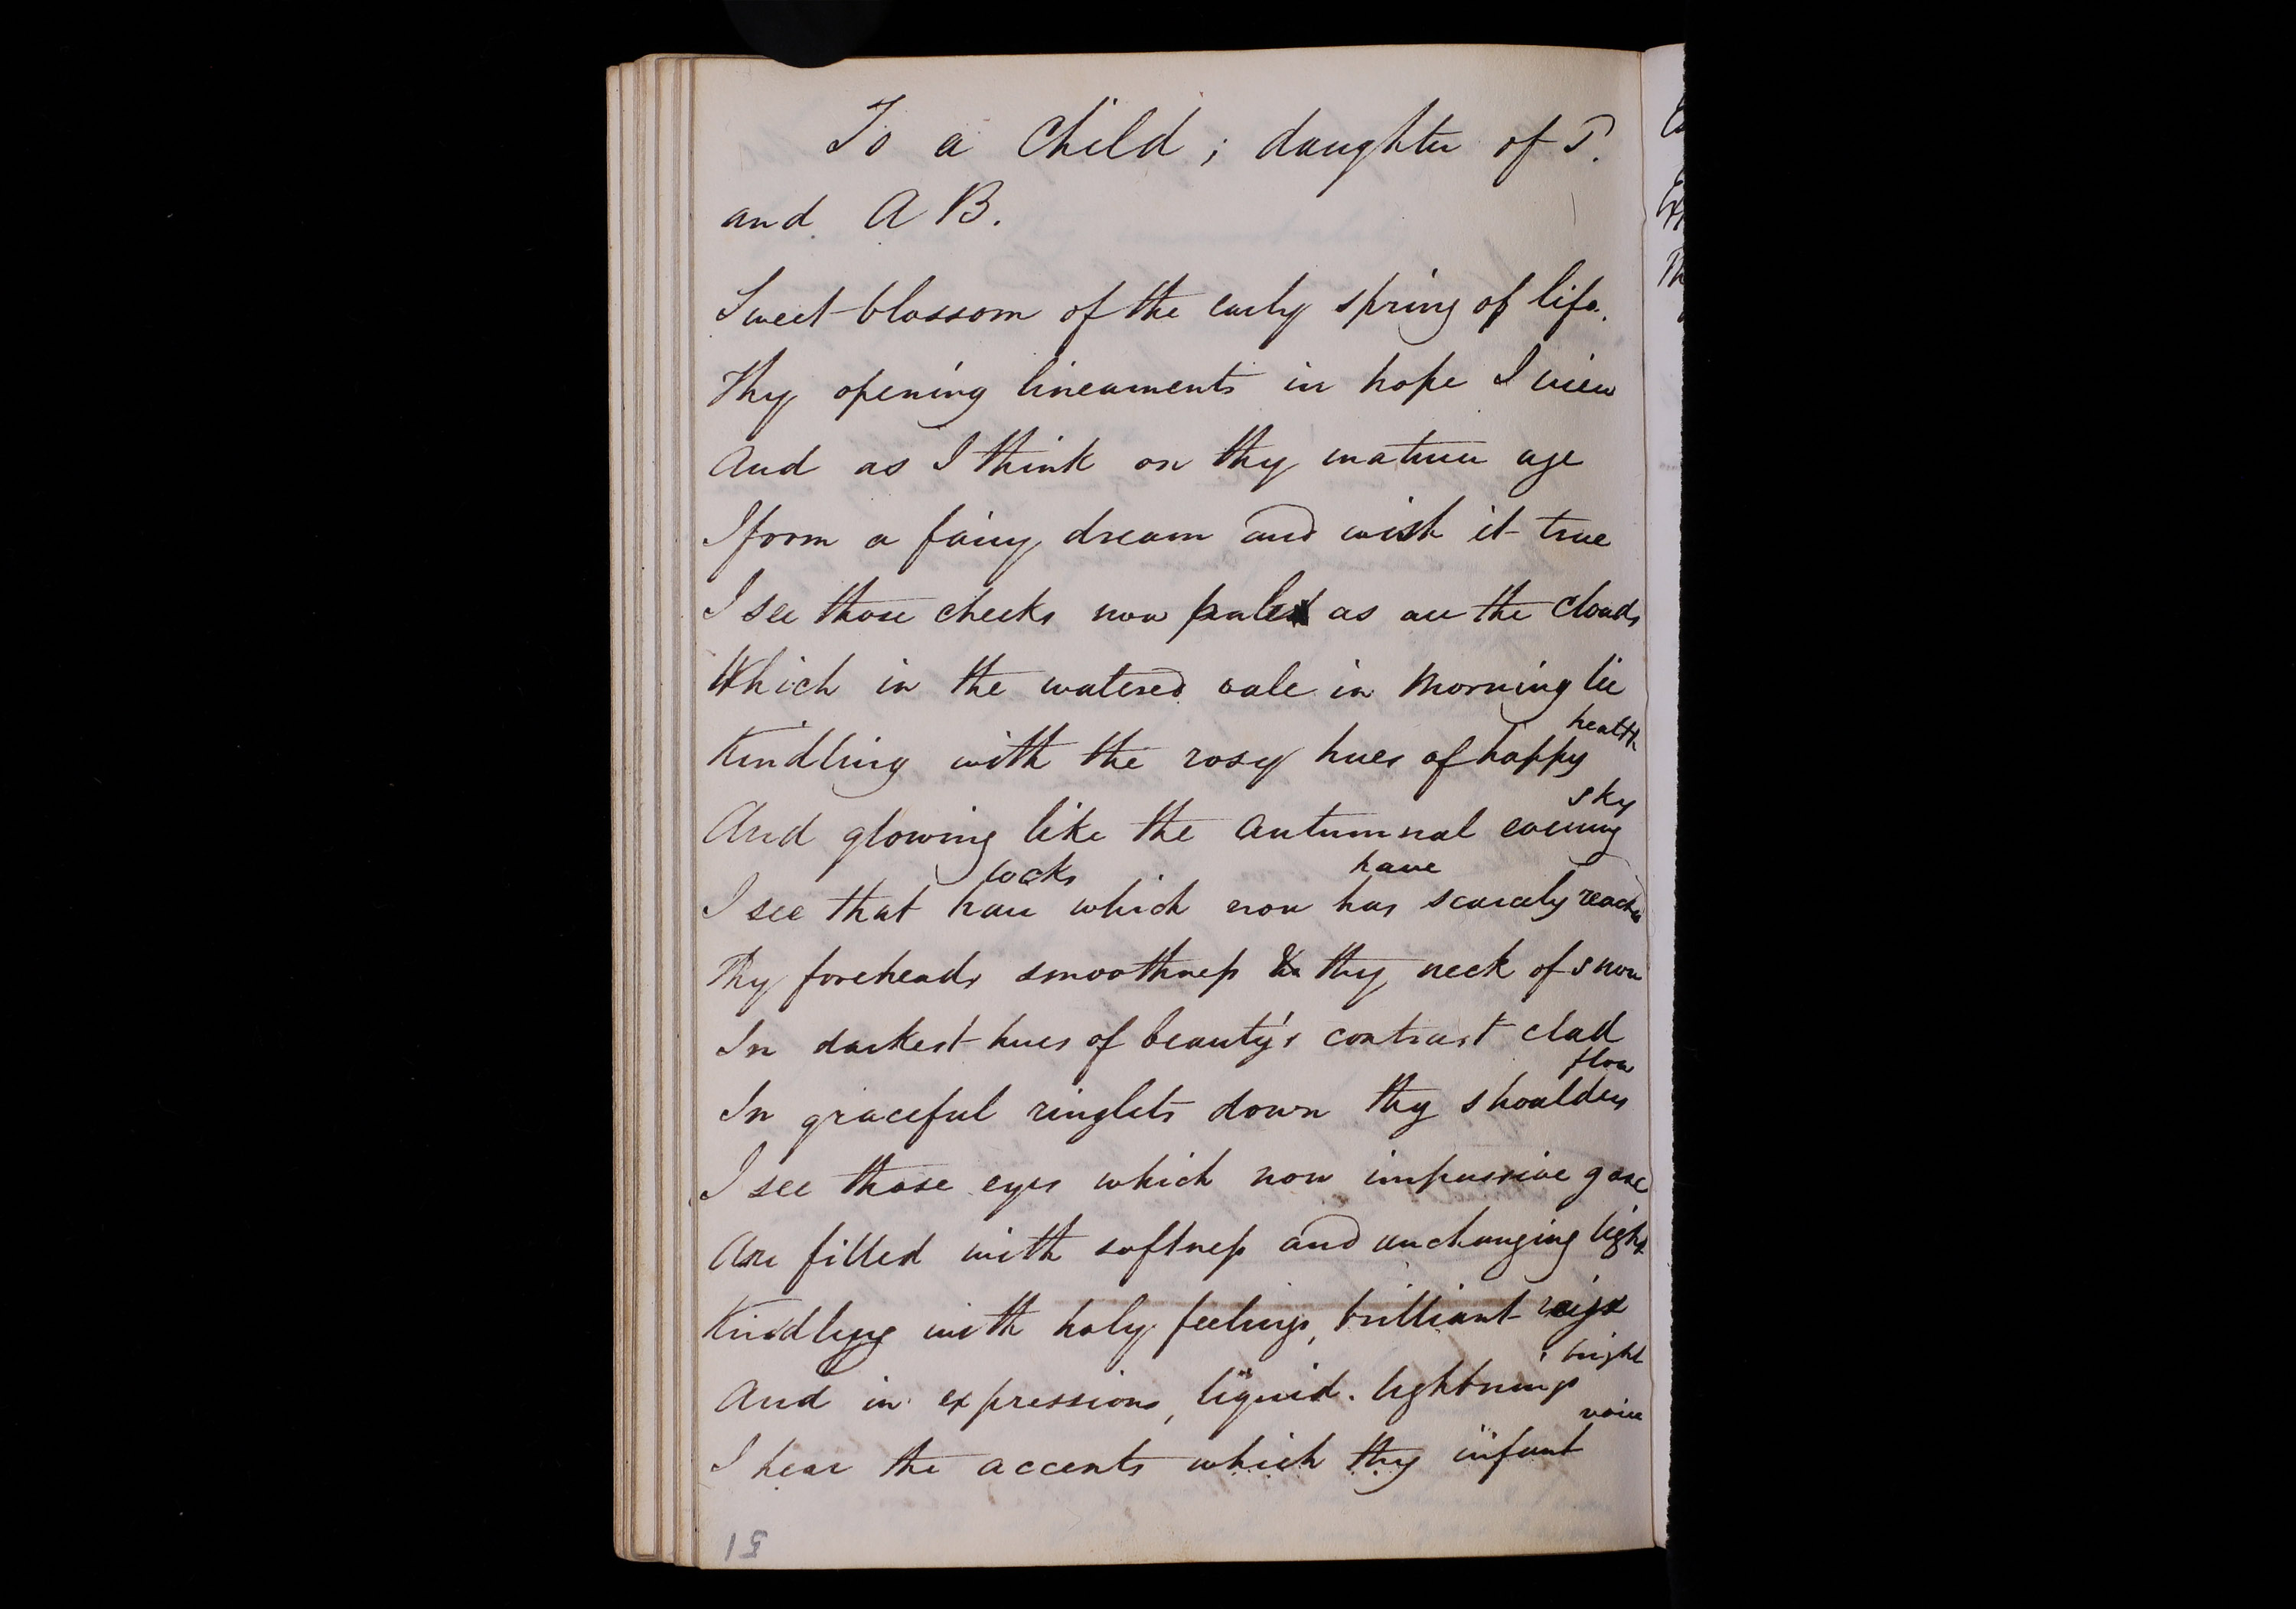 To a Child; daughter of T.
and A B.
Sweet blossom of the early spring of life.
Thy opening lineaments in hope I view
And as I think on thy mature age
I form a fairy dream and wish it true
I see those cheeks now pale as are the clouds
Which in the watered vale in morning lie
health
Kindling with the rosy hues of happy
sky
And glowing like the autumnal evening
locks have
I see that hair which now has scarcely reached
Thy foreheads smoothness thy neck of snow
In darkest hues of beauty's contrast clad
flow
In graceful ringlets down thy shoulders
I see those eyes which now impassive gaze
Are filled with softness and unchanging light
Kindling with holy feelings, brilliant
bright
And in expressions, liquid. lightnings
voice
I hear the accents which thy infant
51